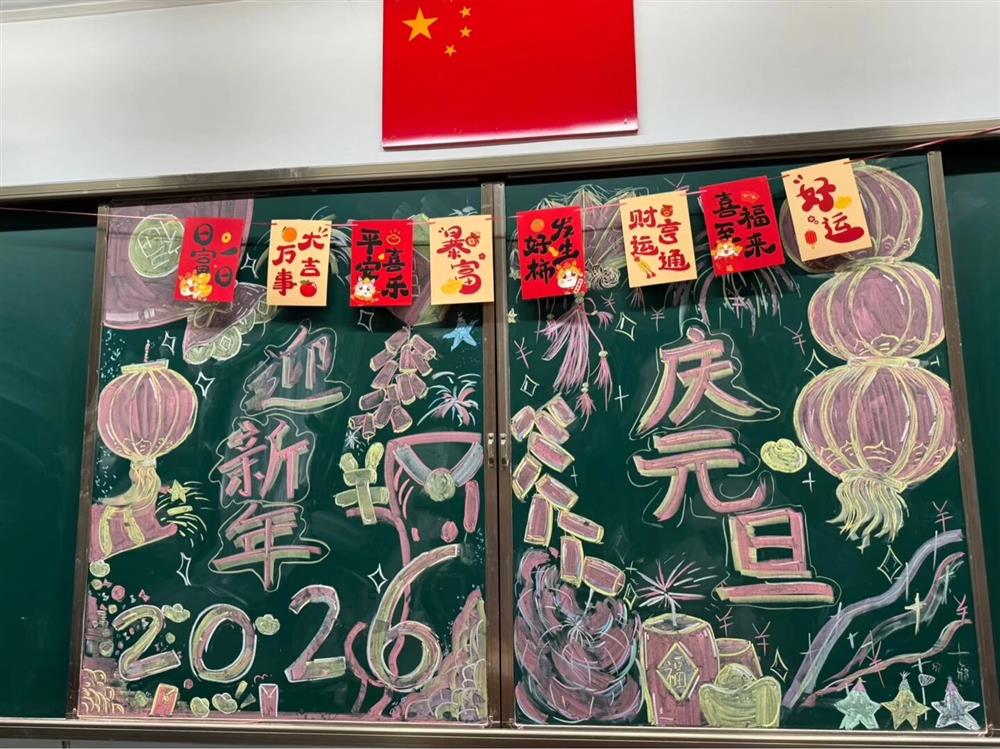 日富一日
万事大吉
平安喜乐
暴富
好柿发生
财运亨通
喜至福来
好运
迎新年
2026
庆元旦
福